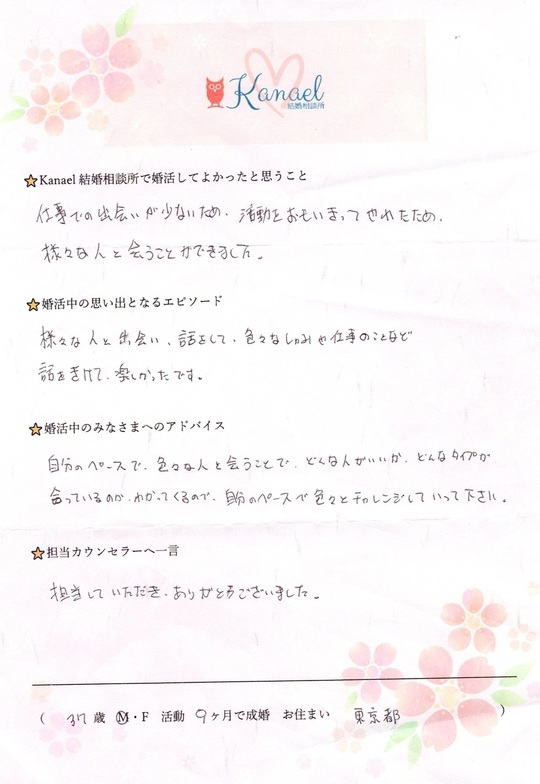 Kanael
結婚相談所
Kanael 結婚相談所で婚活してよかったと思うこと
仕事での出会いが少ないため、活動をおもいきってやれたため、
様々な人と会うことができました。
婚活中の思い出となるエピソード
様々な人と出会い、話をして、色々なしゅみや仕事のことなど
話をきけて、楽しかったです。
婚活中のみなさまへのアドバイス
自分のペースで、色々な人と会うことで、どんな人がいいか、どんなタイプが
合っているのか、わかってくるので、自分のペースで色々とチャレンジしていって下さい。
担当カウンセラーへ一言
担当していただき、ありがとうございました。
( 37歳 M・F 活動 9ヶ月で成婚 お住まい 東京都 )